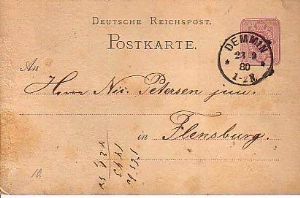 DEUTSCHE REICHSPOST.
POSTKARTE.
DEMMIN
80
An
Herrn Nic. Petersen jun.
in Flensburg.